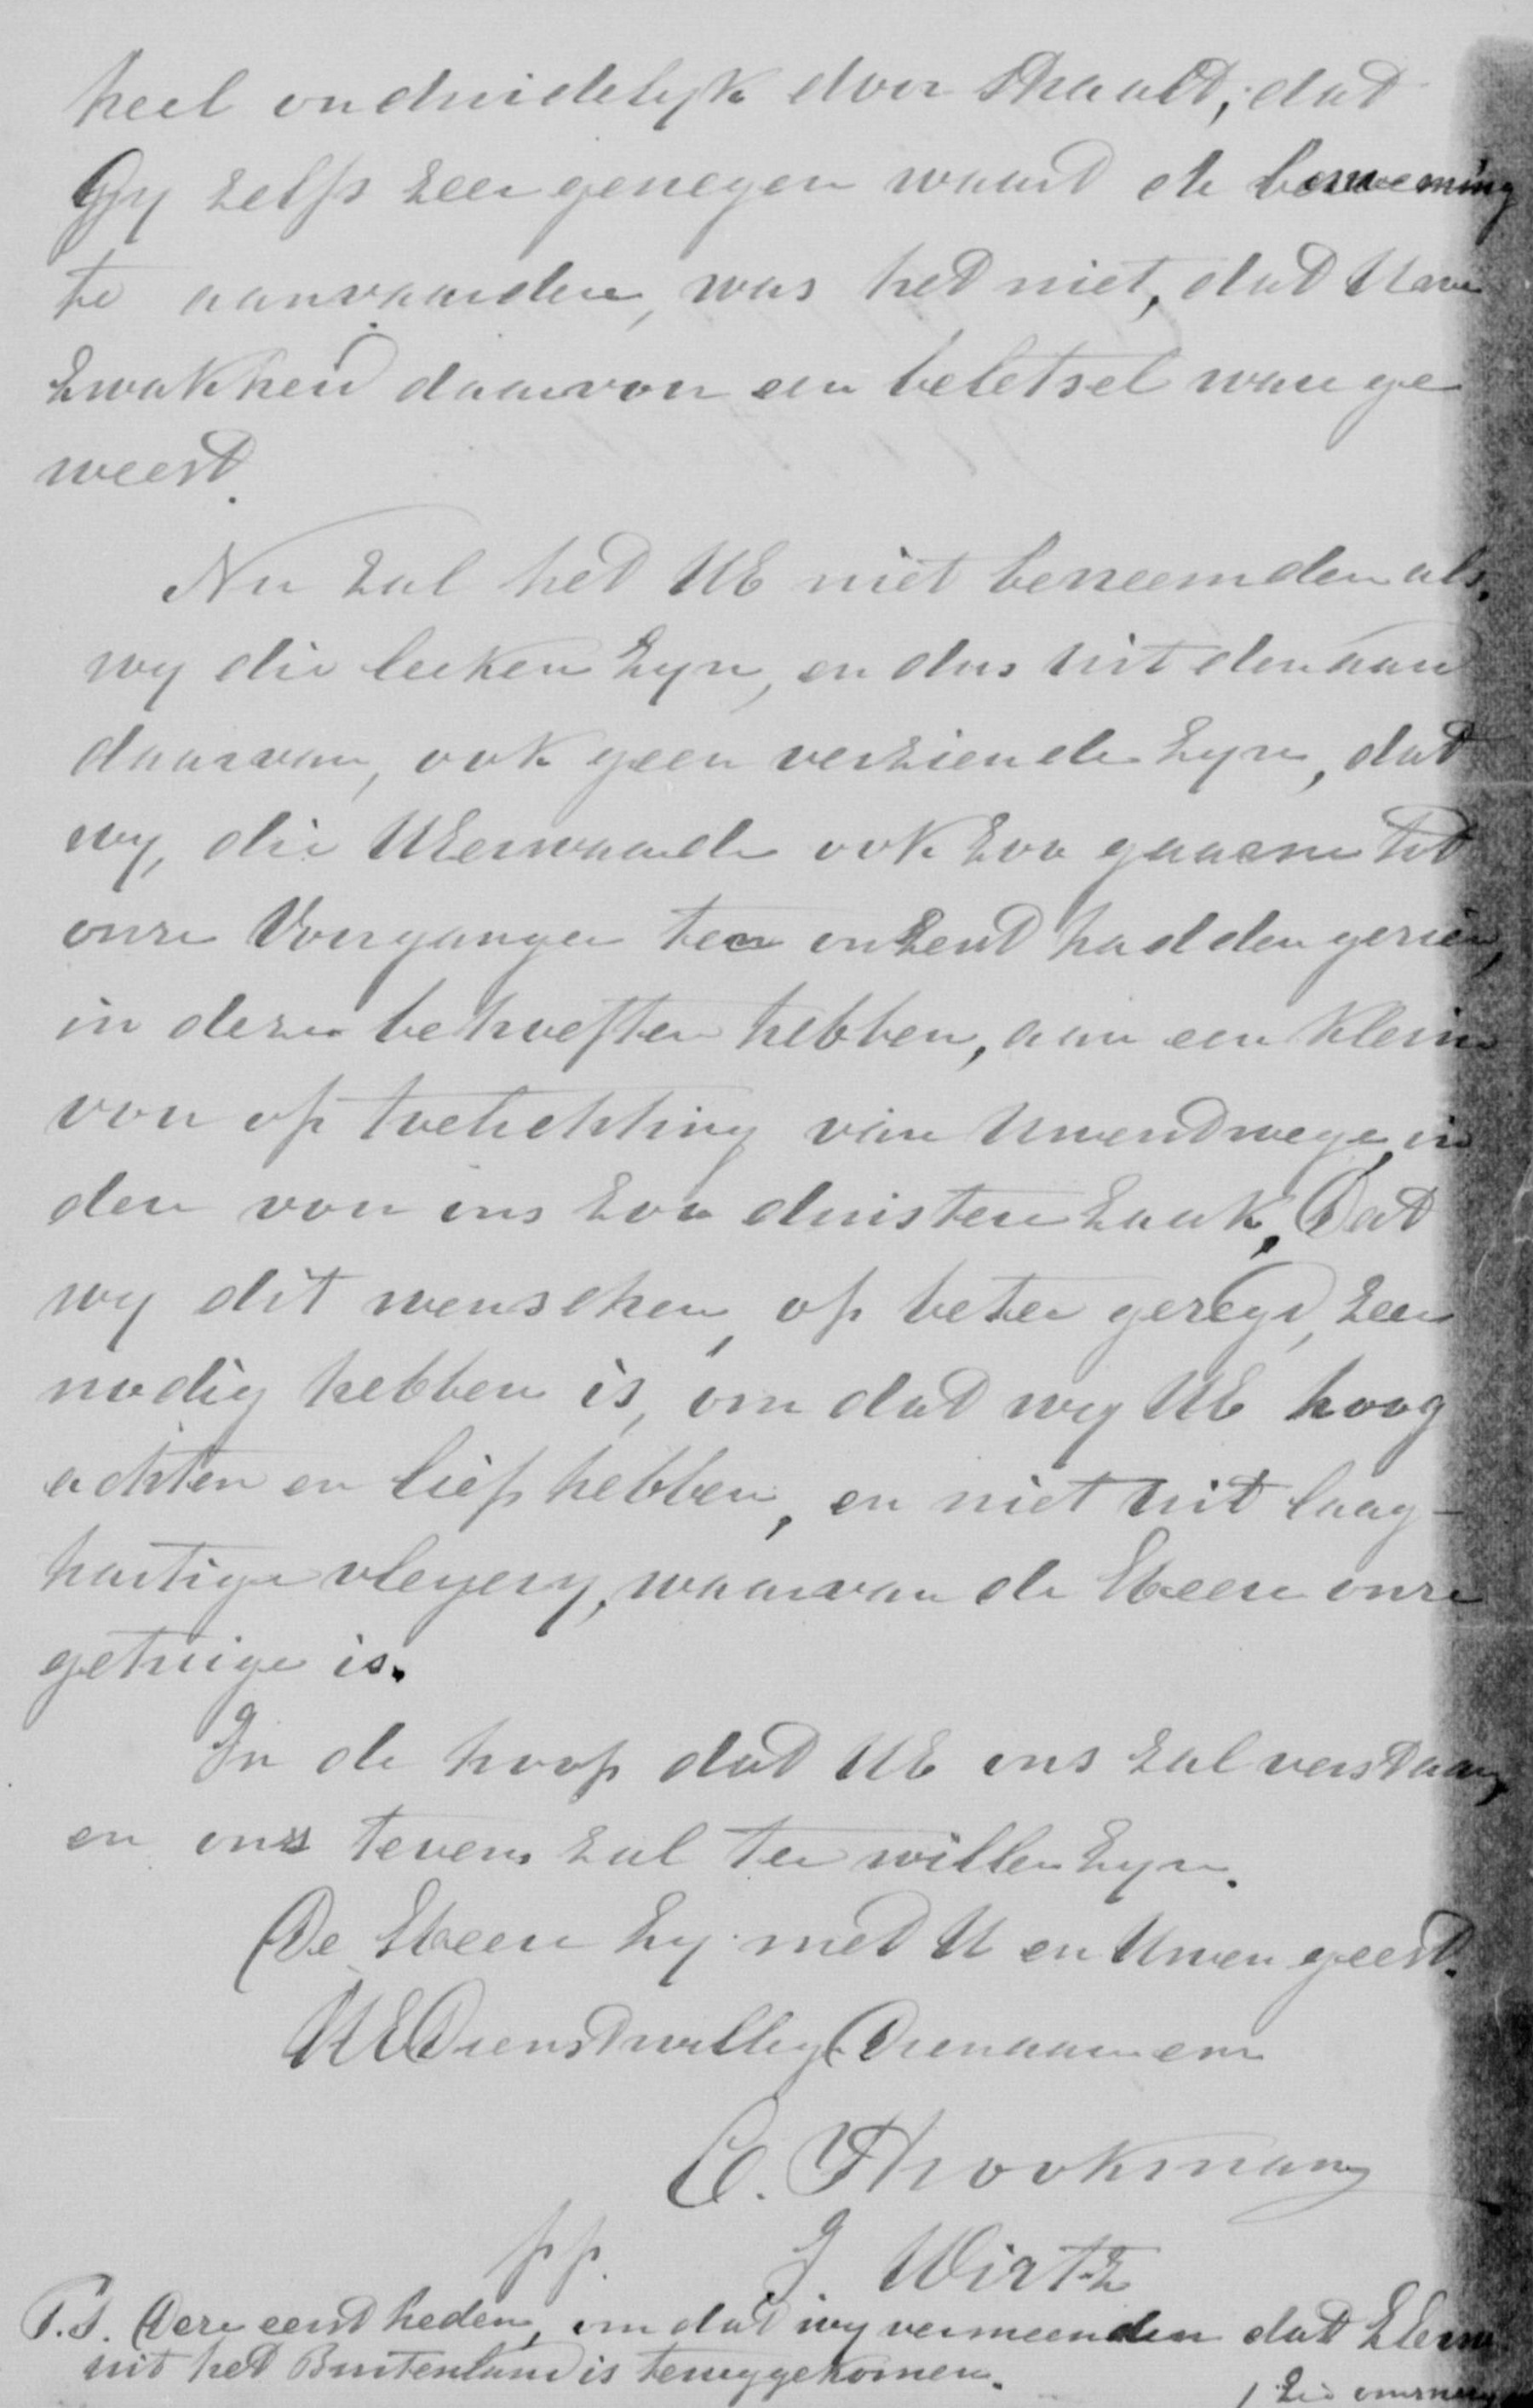 heel onduidelyk door straalt, dat
Gy zelfs zeer genegen waart de benoeming
te aanvaarden, was het niet, dat Uwe
zwakheid daarvoor een beletsel ware ge
weest.
Nu zal het UE niet bevreemden als,
wy die leeken zyn, en dus uit den aard
daarvan, ook geen verziende zyn, dat
wy, die UEerwaarde ook zoo gaarne tot
onze Voorganger ten onzent hadden gezien,
in deze behoeften hebben, aan een kleine
voor of toelichting van Uwentwege, in
deze voor ons zoo duistere zaak, Dat
wy dit wenschen, of beter gezegd, zeer
nodig hebben is, om dat wy UE hoog
achten en lief hebben, en niet uit laag-
hartige vleyery, waarvan de Heere onze
getuige is.
In de hoop dat UE ons zal verstaan,
en ons tevens zal ter wille zyn.
De Heere zy met U en Uwen geest.
UEDienstwillige Dienaaren
C. Strookman
pp. J. Wirtz
P.S. Deze eerst heden, om dat wy vermeenden dat
uit het Buitenland is teruggekomen.